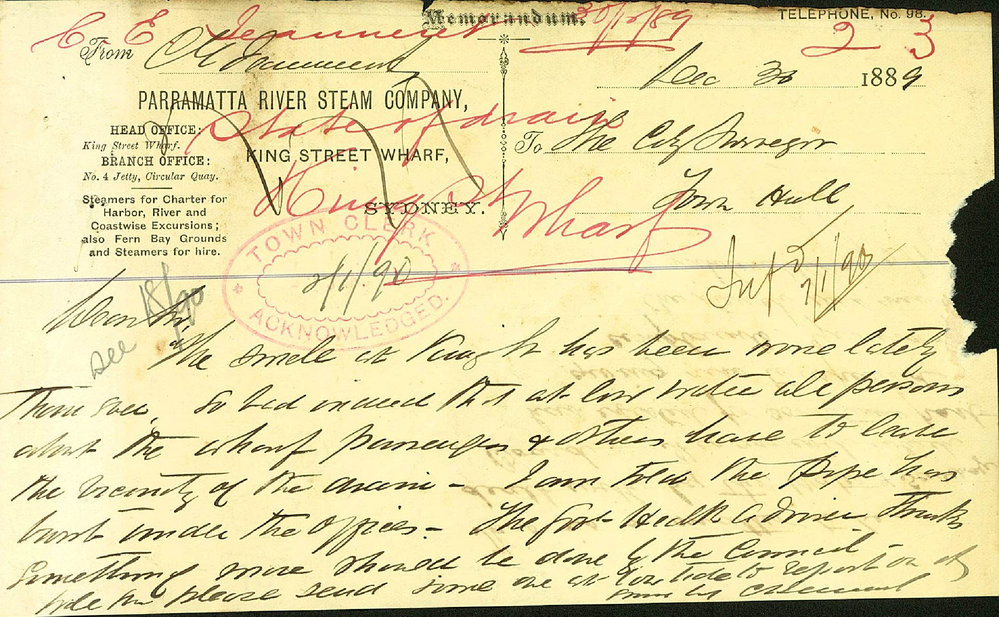 Memorandum.
TELEPHONE, No. 98.
C. E. Jeanneret 30/12/89
23
From C E Jeanneret
Dec 30 1889
PARRAMATTA RIVER STEAM COMPANY,
State of drain
HEAD OFFICE:
King Street Wharf.
BRANCH OFFICE:
No. 4 Jetty, Circular Quay.
KING STREET WHARF,
SYDNEY.
King St
Wharf
To The City Surveyor
Town Hall
Steamers for Charter for
Harbor, River and
Coastwise Excursions;
also Fern Bay Grounds
and Steamers for hire.
TOWN CLERK
2/1/90
ACKNOWLEDGED.
7/1/90
See 18/90
Dear Sir
The smell at King St has been worse lately
than ever, so bad indeed that at low water all persons
about the wharf passengers & others have to leave
the vicinity of the drain – I am told the pipe has
burst under the offices – The Govt Health adviser thinks
something more should be done by the Council –
Will you please send some one at low tide to report on it
yours truly C E Jeanneret